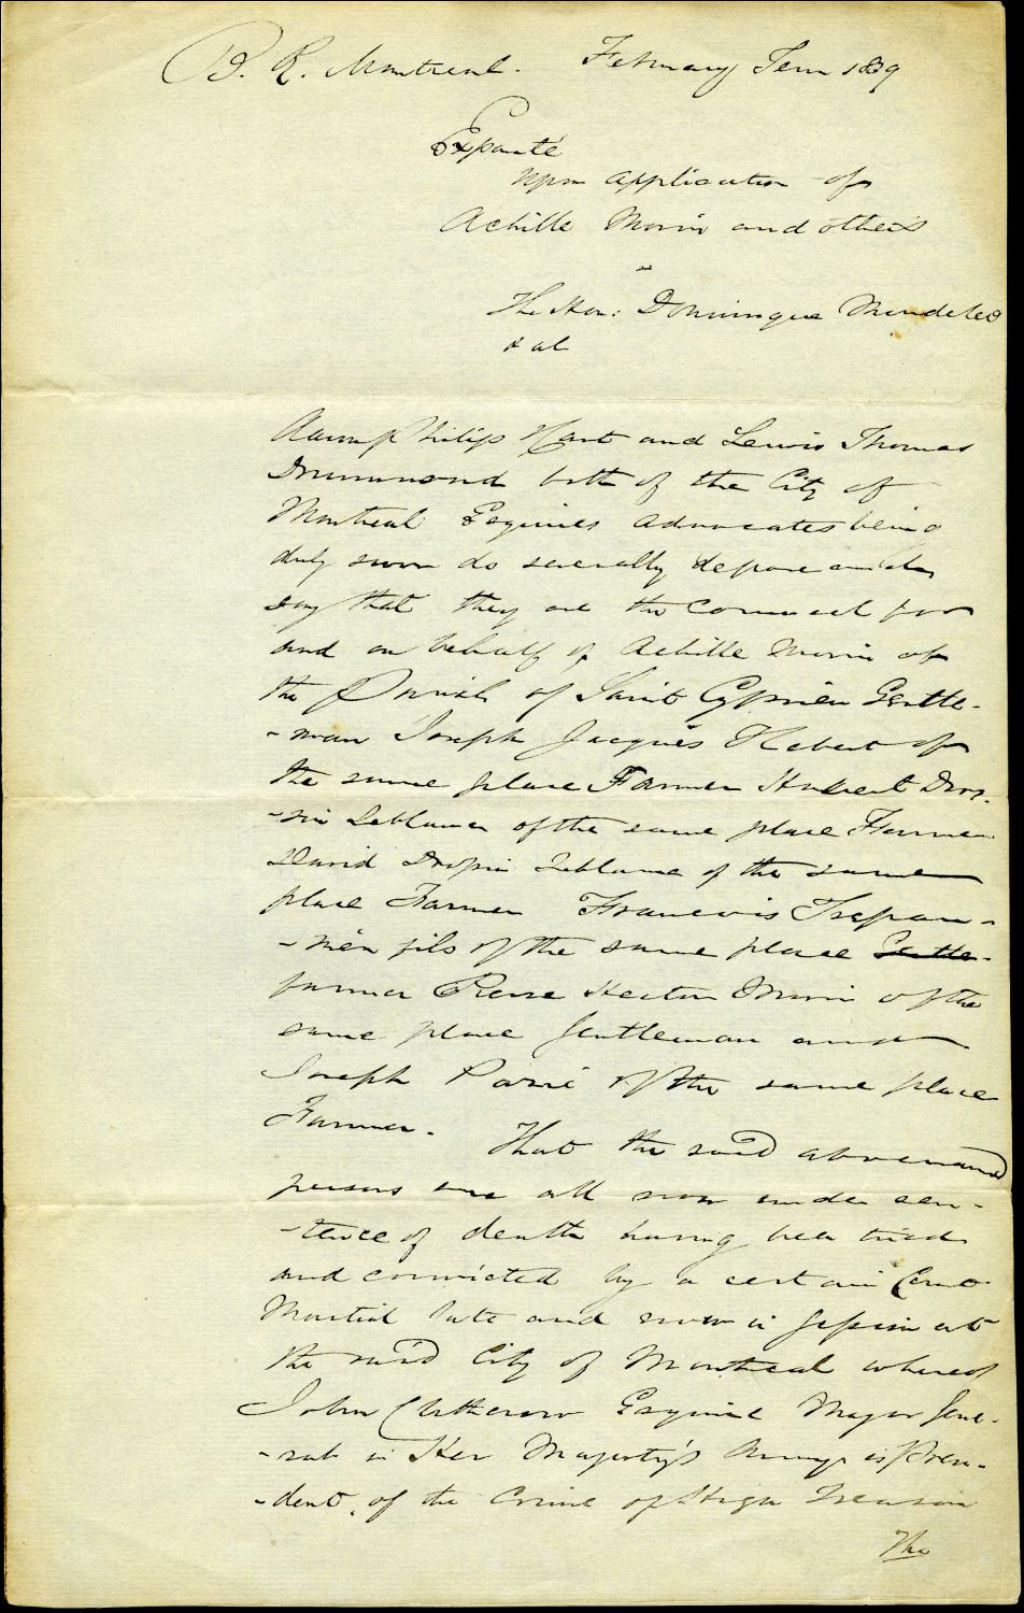 B. R. Montreal. February Term 1839
Exparté
Upon application of
Achille Morin and others
The Hon: Dominique Mondelet
& al
Aaron Philip Hart and Lewis Thomas
Drummond both of the City of
Montreal Esquires advocates being
duly sworn do severally depose and
say that they are the Counsel for
and on behalf of Achille Morin of
the Parish of Saint Cyprien Gentle-
-man Joseph Jacques Hebert of
the same place Farmer Hubert Dros-
-sin Leblanc of the same place Farmer
David Drossin Leblanc of the same
place Farmer Francois Trepan-
-nier fils of the same place Gentle-
farmer Pierre Hector Morin of the
same place Gentleman and
Joseph Paré of the same place
Farmer. That the said abovenamed
persons are all now under sen-
-tence of death having been tried
and convicted by a certain Court
Martial late and now in Session at
the said City of Montreal whereof
John Clitherow Esquire Major Gene-
-ral in Her Majesty's Army is Presi-
-dent, of the Crime of High Treason
The